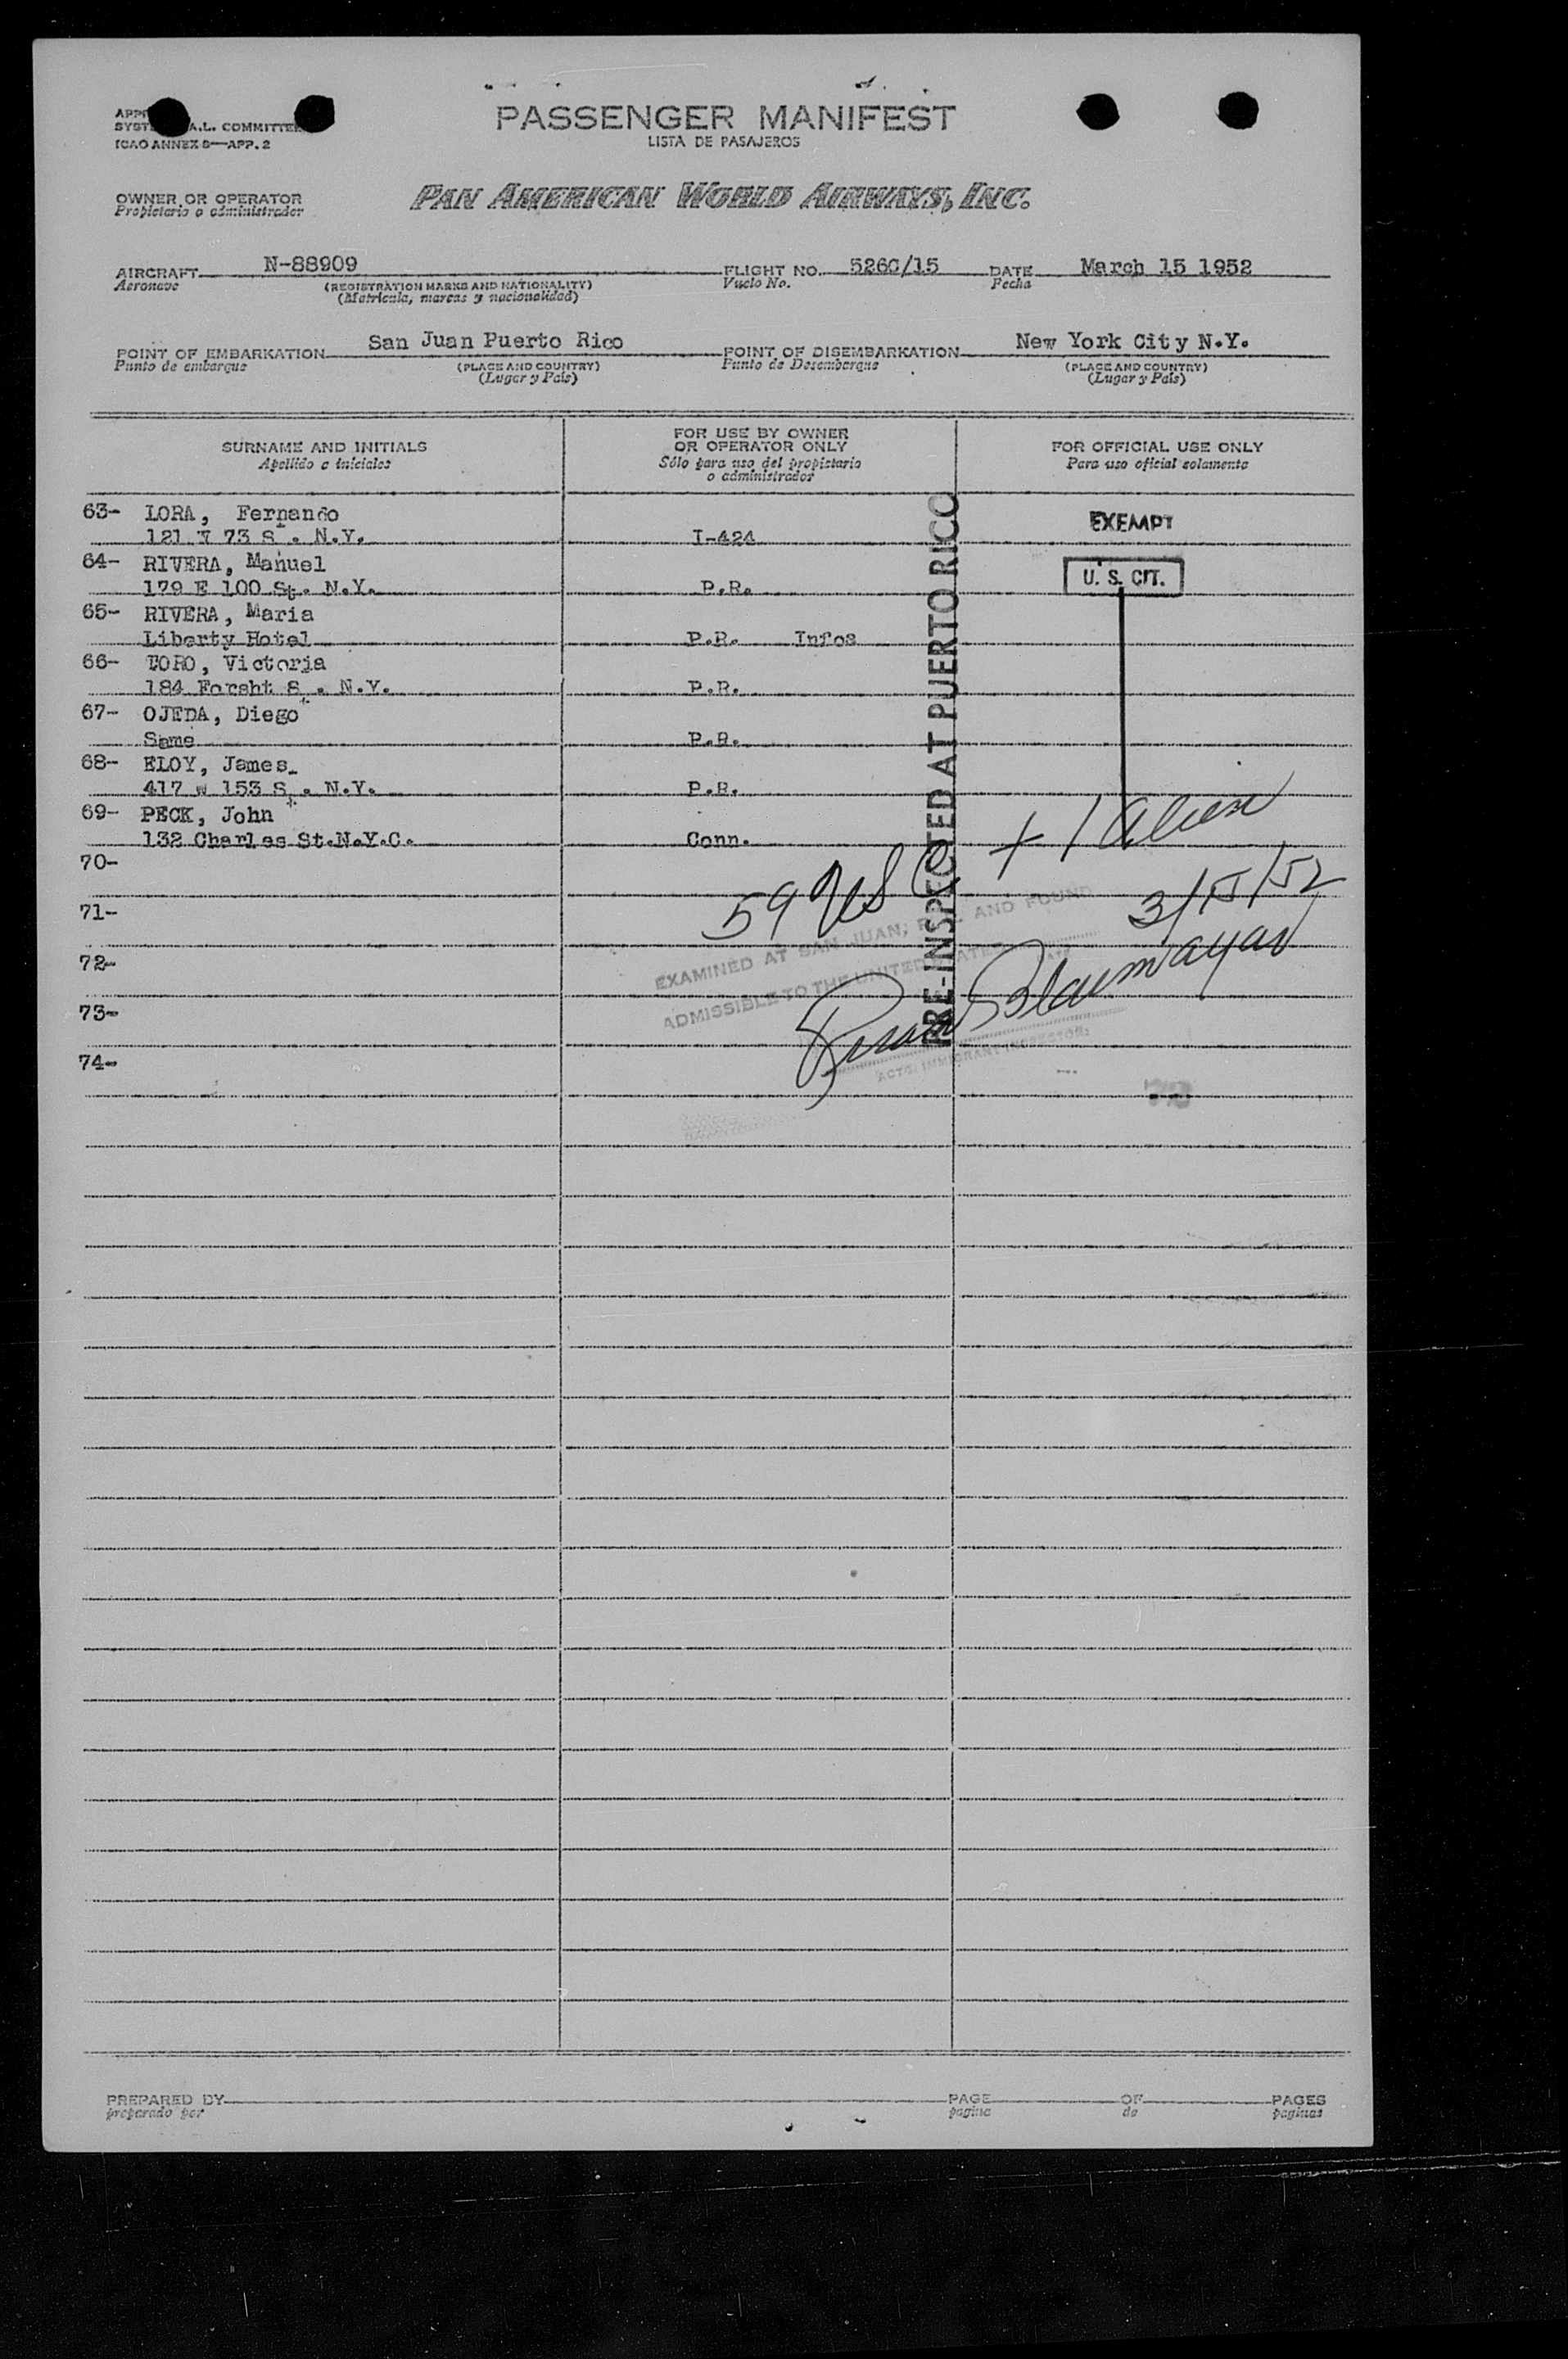 PASSENGER MANIFEST
LISTA DE PASAJEROS
A.L. COMMITTEE
ICAO ANNEX 9—APP. 2
OWNER OR OPERATOR PAN AMERICAN WORLD AIRWAYS, INC.
Propietario o administrador
AIRCRAFT N-88909 FLIGHT NO. 526C/15 DATE March 15 1952
Aeronave (REGISTRATION MARKS AND NATIONALITY) Vuelo No. Fecha
(Matricula, marcas y nacionalidad)
POINT OF EMBARKATION San Juan Puerto Rico POINT OF DISEMBARKATION New York City N.Y.
Punto de embarque (PLACE AND COUNTRY) Punto de Desembarque (PLACE AND COUNTRY)
(Lugar y País) (Lugar y País)
SURNAME AND INITIALS FOR USE BY OWNER OR OPERATOR ONLY FOR OFFICIAL USE ONLY
Apellido e iniciales Sólo para uso del propietario o administrador Para uso oficial solamente
63- LORA, Fernando EXEMPT
121 W 73 St. N.Y. I-424
64- RIVERA, Manuel U. S. CIT.
179 E 100 St. N.Y. P.R.
65- RIVERA, Maria
Liberty Hotel P.R. Infos
66- TORO, Victoria
184 Forsht St. N.Y. P.R.
67- OJEDA, Diego
Same P.R.
68- ELOY, James
417 W 153 St. N.Y. P.R.
69- PECK, John
132 Charles St.N.Y.C. Conn.
70-
71-
72-
73-
74-
PRE-INSPECTED AT PUERTO RICO
59 USC + 1 alien
3/15/52
EXAMINED AT SAN JUAN, P.R. AND FOUND
ADMISSIBLE TO THE UNITED STATES
ACTG. IMMIGRANT INSPECTOR
PREPARED BY PAGE OF PAGES
preparado por pagina de paginas